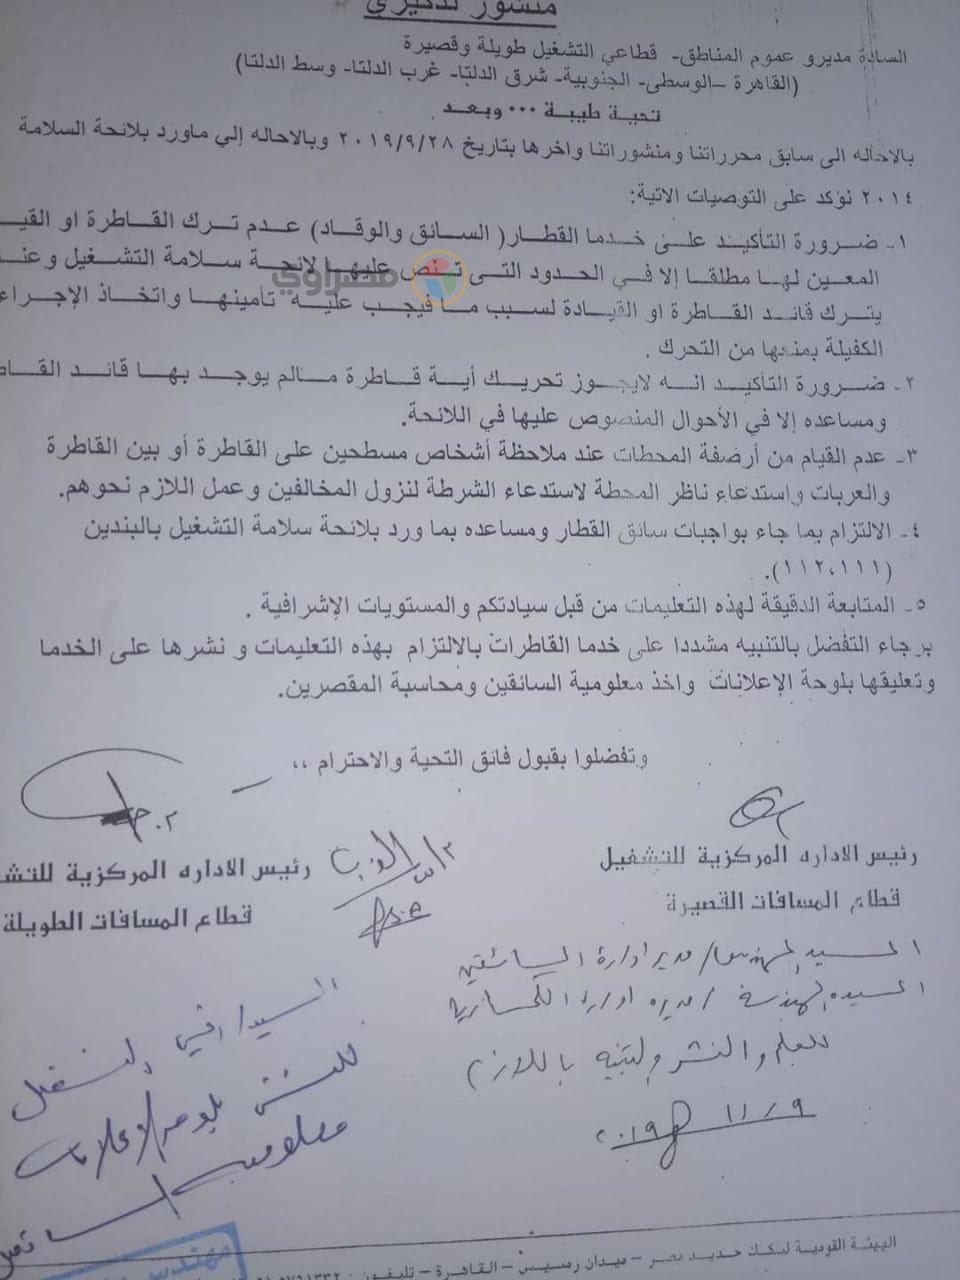 منشور تذكيري
السادة مديرو عموم المناطق- قطاعي التشغيل طويلة وقصيرة
(القاهرة –الوسطى- الجنوبية- شرق الدلتا- غرب الدلتا- وسط الدلتا)
تحية طيبة ... وبعد
بالاحاله الى سابق محرراتنا ومنشوراتنا واخرها بتاريخ ٢٠١٩/٩/٢٨ وبالاحاله إلي ماورد بلائحة السلامة
٢٠١٤ نؤكد على التوصيات الاتية:
١- ضرورة التأكيد على خدما القطار( السائق والوقاد) عدم ترك القاطرة او القيـ
المعين لها مطلقا إلا في الحدود التى تنص عليها لائحة سلامة التشغيل وعنـ
يترك قائد القاطرة او القيادة لسبب ما فيجب عليه تأمينها واتخاذ الإجراء
الكفيلة بمنعها من التحرك .
٢- ضرورة التأكيد انه لايجوز تحريك أية قاطرة مالم يوجد بها قائد القاط
ومساعده إلا في الأحوال المنصوص عليها في اللائحة.
٣- عدم القيام من أرصفة المحطات عند ملاحظة أشخاص مسطحين على القاطرة أو بين القاطرة
والعربات واستدعاء ناظر المحطة لاستدعاء الشرطة لنزول المخالفين وعمل اللازم نحوهم.
٤- الالتزام بما جاء بواجبات سائق القطار ومساعده بما ورد بلائحة سلامة التشغيل بالبندين
(١١٢،١١١).
٥- المتابعة الدقيقة لهذه التعليمات من قبل سيادتكم والمستويات الإشرافية .
برجاء التفضل بالتنبيه مشددا على خدما القاطرات بالالتزام بهذه التعليمات و نشرها على الخدما
وتعليقها بلوحة الإعلانات واخذ معلومية السائقين ومحاسبة المقصرين.
وتفضلوا بقبول فائق التحية والاحترام ،،
رئيس الاداره المركزية للتشغيل
قطاع المسافات القصيرة
رئيس الاداره المركزية للتش
قطاع المسافات الطويلة
السيد المهندس/ مدير ادارة السائقين
السيده المهندسة / مديره اداره الكمسارية
للعلم والنشر والتنبيه باللازم
٢٠١٩ ١١/٩
السيد/
للنشر بلوحة الاعلانات
معلومية السائقين
مهندس
الهيئة القومية لسكك حديد مصر – ميدان رمسيس – القاهرة – تليفون:
مصراوي